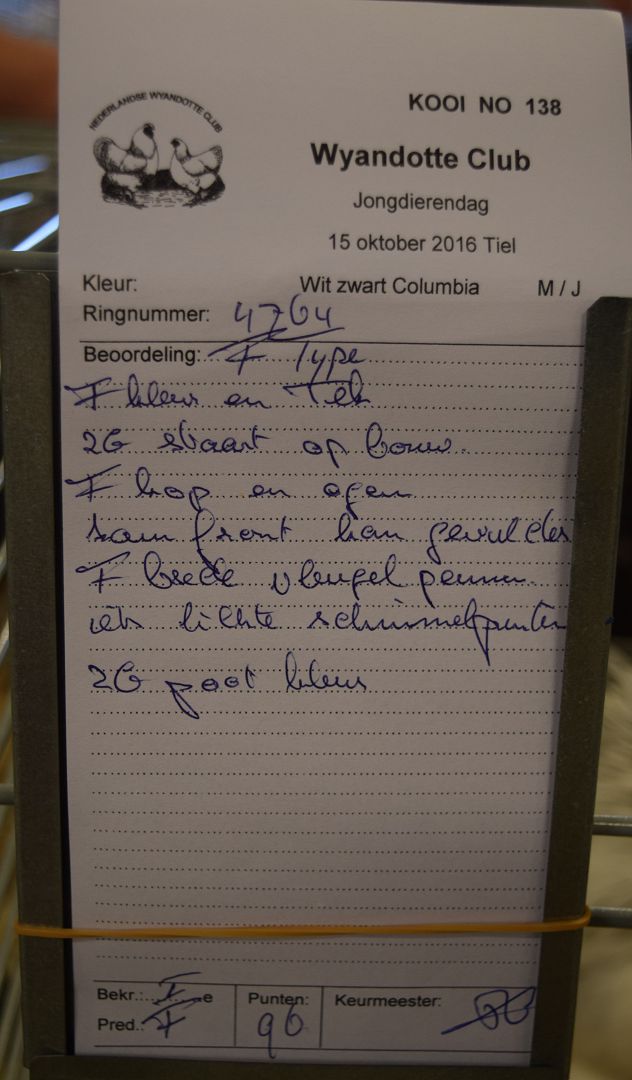 NEDERLANDSE WYANDOTTE CLUB
KOOI NO 138
Wyandotte Club
Jongdierendag
15 oktober 2016 Tiel
Kleur: Wit zwart Columbia M / J
Ringnummer: 4764
Beoordeling: F Type
F kleur en Tek
ZG staart op bouw.
F kop en ogen
kam front kan gevulder
F brede vleugel pennen
iets lichte schimmelpunten
ZG poot kleur
Bekr.: e
Punten: 96
Keurmeester:
Pred.: F